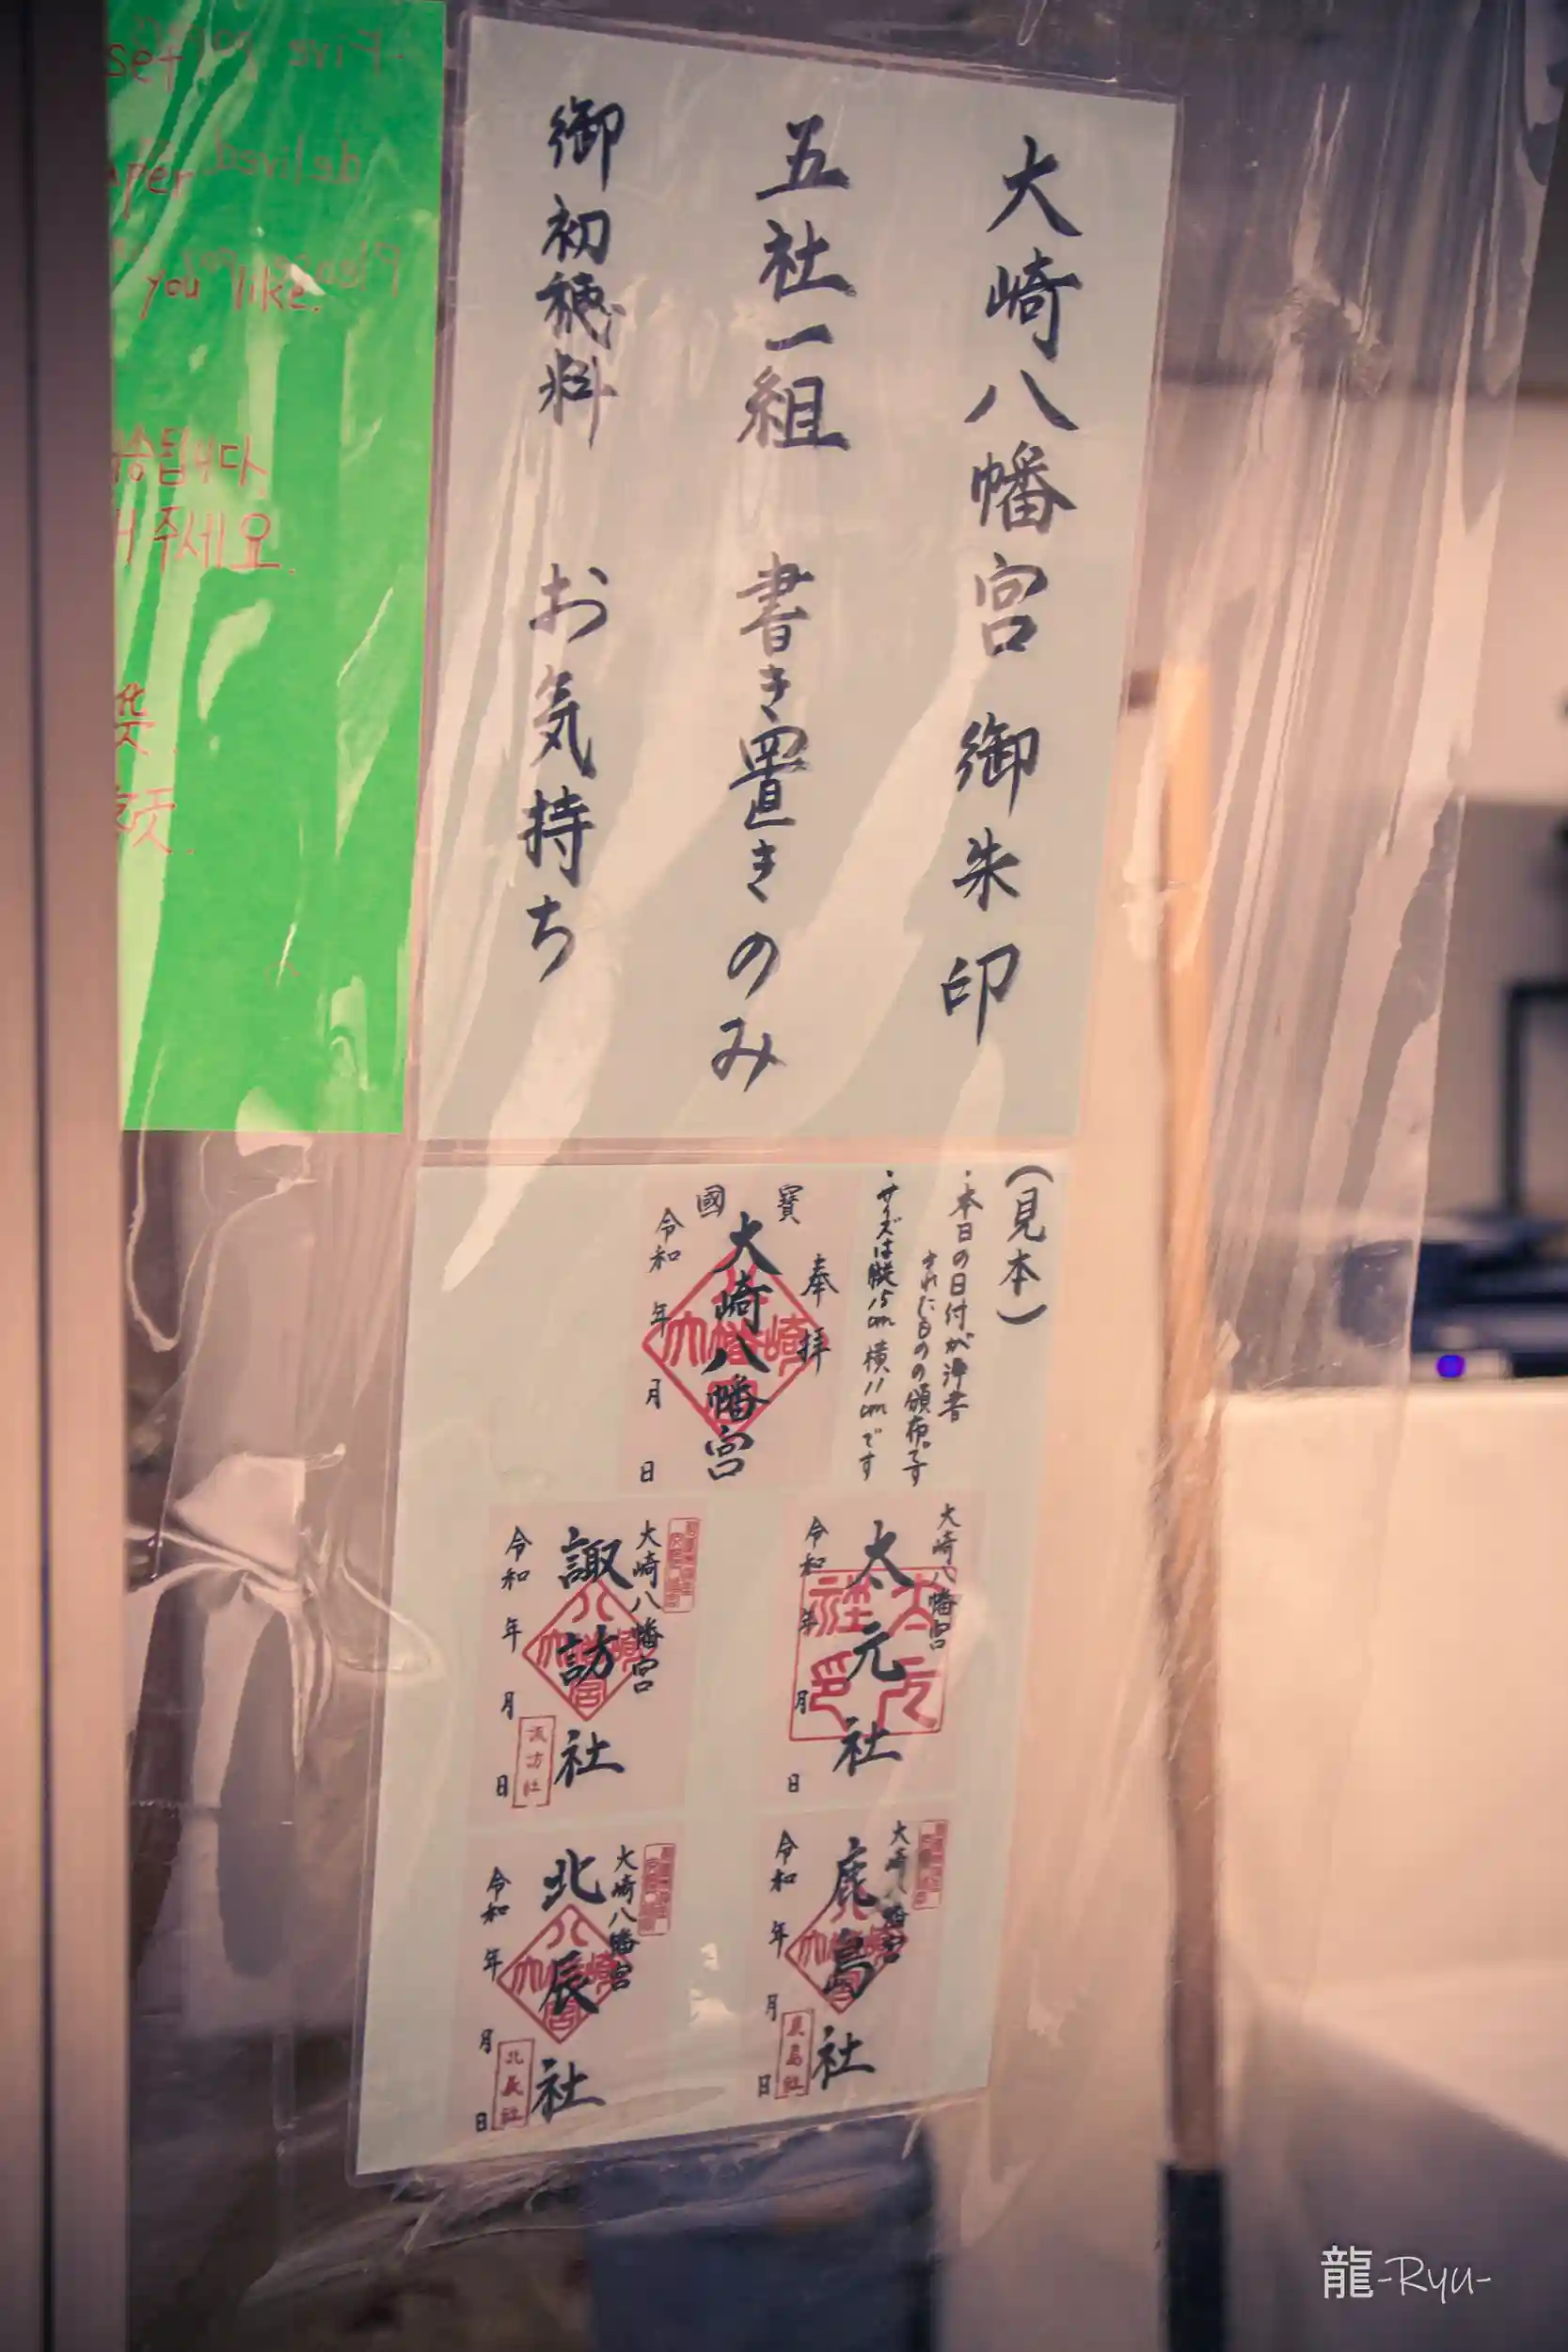 大崎八幡宮 御朱印
五社一組 書き置きのみ
御初穂料 お気持ち
(見本)
・本日の日付が浄書
されたものの頒布です
・サイズは縦15cm 横11cmです
國寳
奉拝
大崎八幡宮
令和 年 月 日
大崎八幡宮
太元社
令和 年 月 日
大崎八幡宮
諏訪社
令和 年 月 日
諏訪社
大崎八幡宮
鹿島社
令和 年 月 日
鹿島社
大崎八幡宮
北辰社
令和 年 月 日
北辰社
Five
set
you like.
됩니다
주세요.
龍-Ryu-